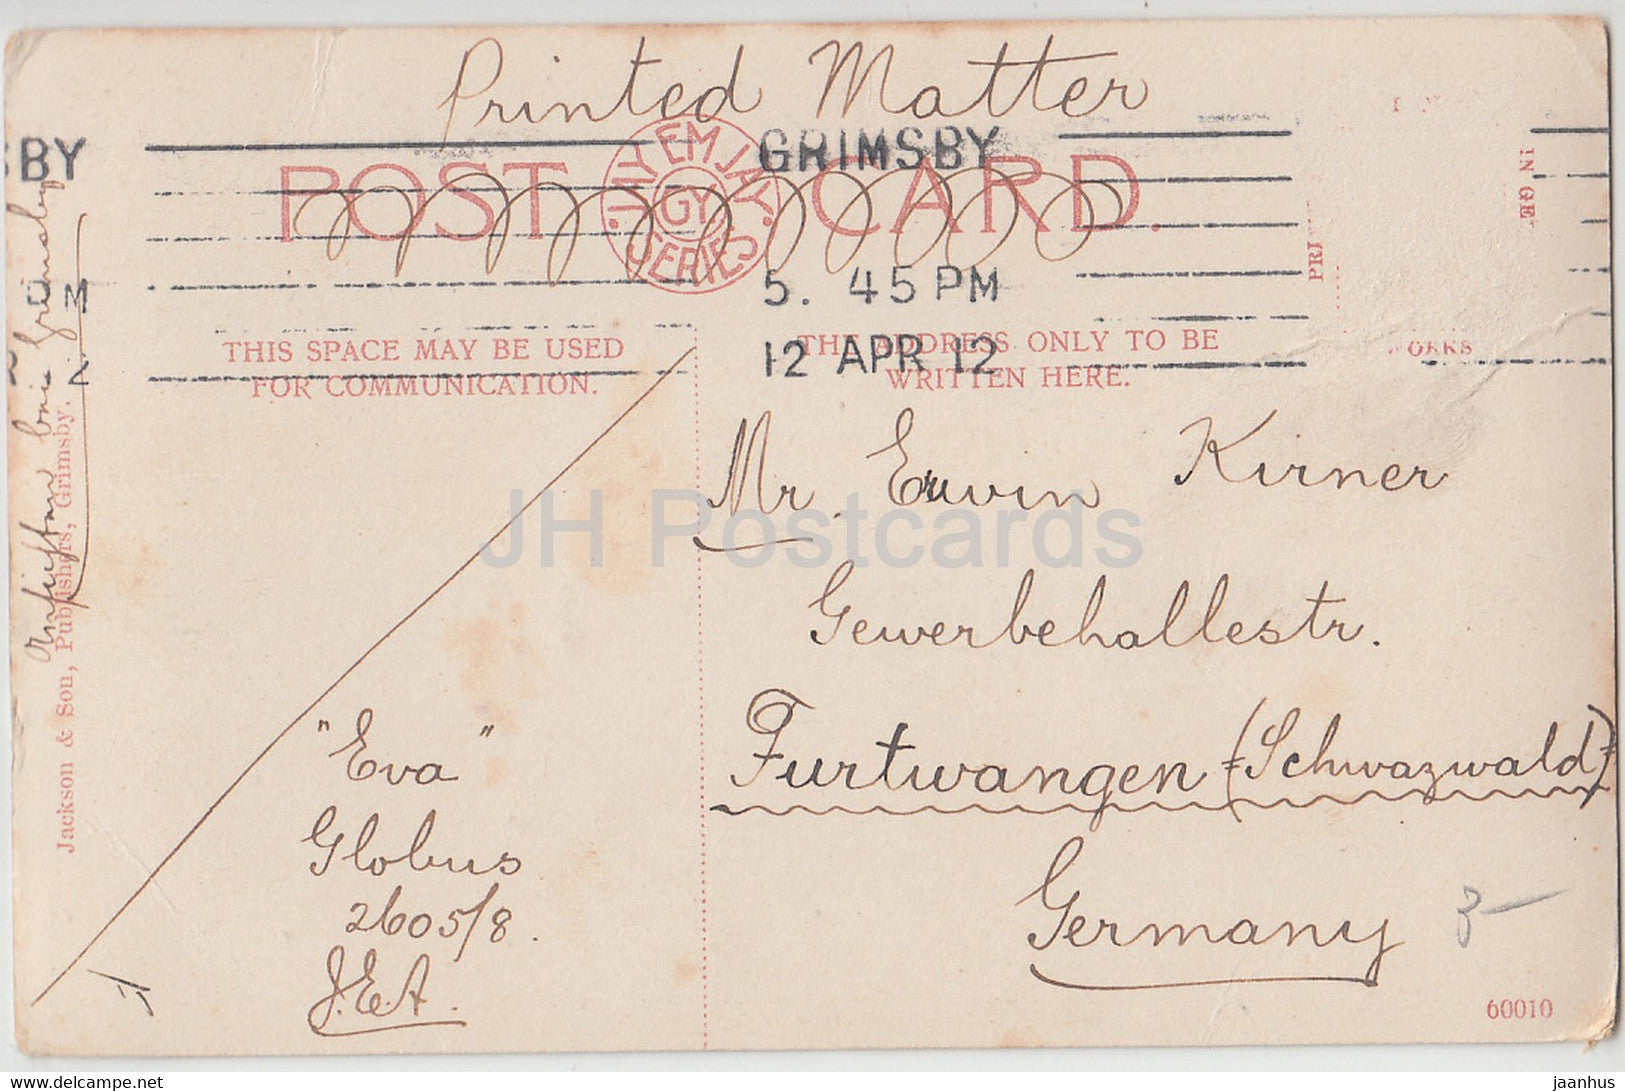 Printed Matter
BY
GRIMSBY
POST CARD.
THE EM JAY.
GY.
SERIES
5. 45 PM
12 APR 12
THIS SPACE MAY BE USED
FOR COMMUNICATION.
THE ADDRESS ONLY TO BE
WRITTEN HERE.
PRI
IN GE
ORKS
Mr. Erwin Kirner
Gewerbehallestr.
Furtwangen (Schwazwald)
Germany
3-
"Eva"
Globus
2605/8.
J.E.A.
Grimsby
Jackson & Son, Publishers, Grimsby.
60010
JH Postcards
delcampe.net
jaanhus